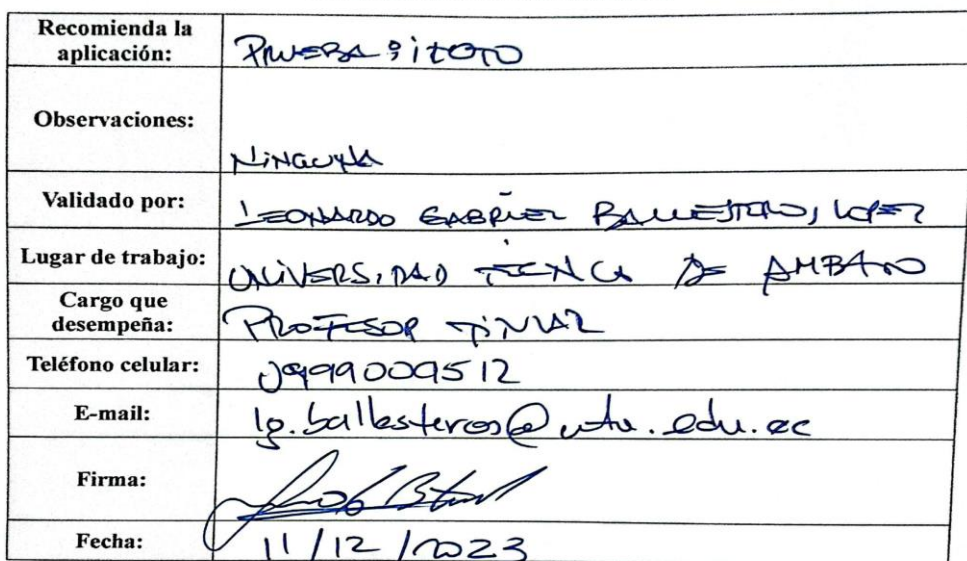 Recomienda la
aplicación:
PRUEBA PILOTO
Observaciones:
NINGUNA
Validado por:
LEONARDO GABRIEL BALLESTEROS LOPEZ
Lugar de trabajo:
UNIVERSIDAD TECNICA DE AMBATO
Cargo que
desempeña:
PROFESOR TITULAR
Teléfono celular:
0999009512
E-mail:
lg.ballesteros@uta.edu.ec
Firma:
Fecha:
11/12/2023